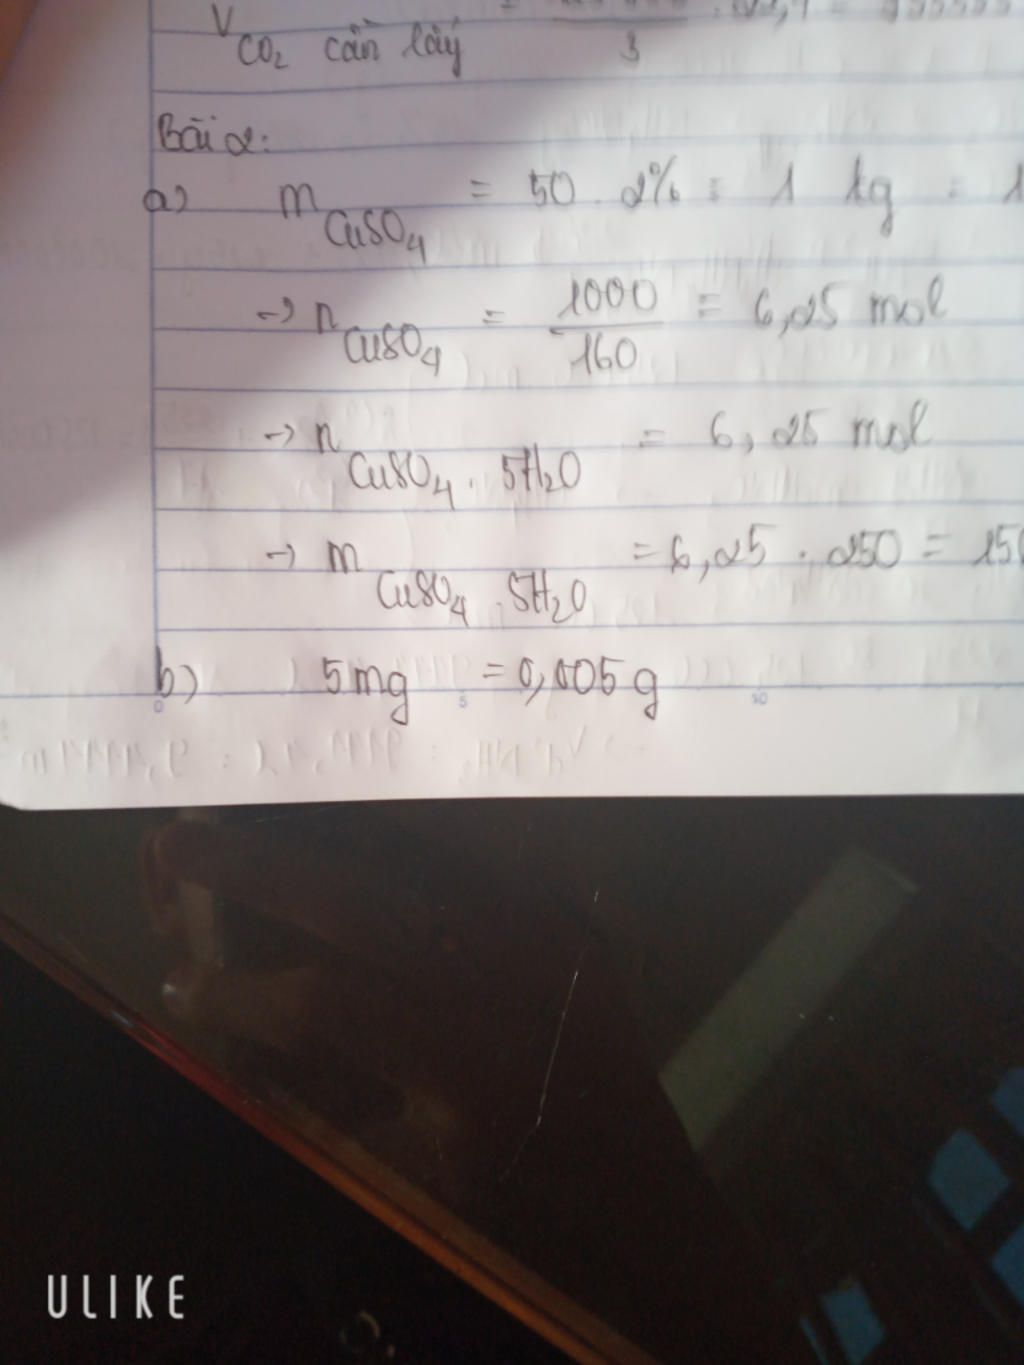 V CO₂ cần lấy 3
Bài 2:
a) m CuSO₄ = 50 . 2% = 1 kg = 1
→ n CuSO₄ = 1000/160 = 6,25 mol
→ n CuSO₄ . 5H₂O = 6,25 mol
→ m CuSO₄ . 5H₂O = 6,25 . 250 = 15
b) 5mg = 0,005g
0 5 10
ULIKE